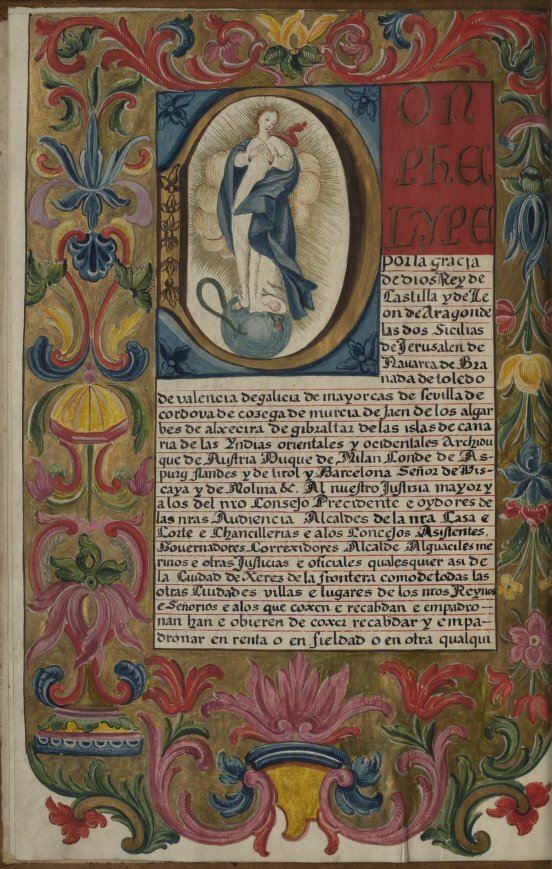 DON
PHE
LYPE
por la gracia
de dios Rey de
Castilla y de Le
on de Aragon de
las dos Sicilias
de Jerusalen de
Navarra de Gra
nada de toledo
de valencia de galicia de mayorcas de sevilla de
cordova de corcega de murcia de Jaen de los algar
bes de algecira de gibraltar de las islas de cana
ria de las Yndias orientales y ocidentales Archidu
que de Austria Duque de Milan Conde de As-
purg flandes y de tirol y Barcelona Señor de Vis
caya y de Molina &. Al nuestro Justizia mayor y
a los del nro Consejo Precidente e oydores de
las nras Audiencia Alcaldes de la nra Casa e
Corte e Chancillerias e a los Concejos Asistentes,
Governadores Correxidores Alcalde Alguaciles me
rinos e otras Justicias e oficiales qualesquier asi de
la Ciudad de Xeres de la frontera como de todas las
otras Ciudades villas e lugares de los nros Reynos
e Señorios e a los que coxen e recabdan e empadro-
nan han e obieren de coxer recabdar y empa-
dronar en renta o en fieldad o en otra qualqui